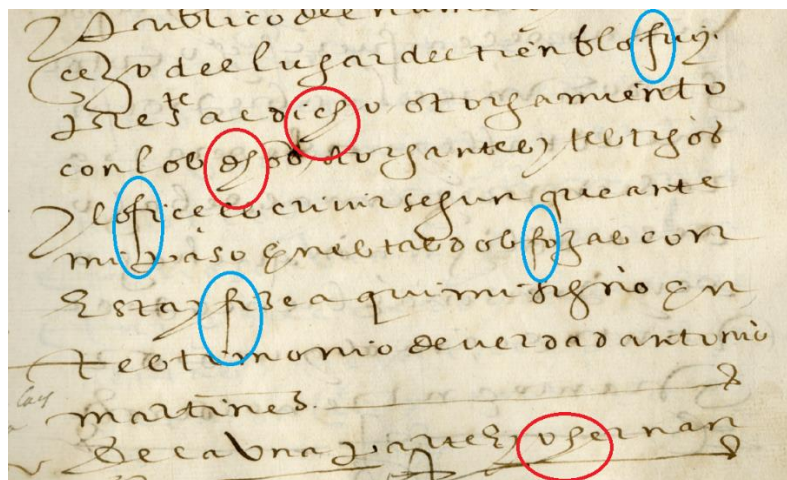 publico del numero
ce zo del lugar del tienblo fuy
press.te a el dicho otorgamiento
con los dhos otorgantes y testigos
y lo fice escrivir segun que ante
mi paso en estas dos fojas con
esta y fize aqui mi signo en
testimonio de verdad antonio
martines
de la una parte E yo hernan